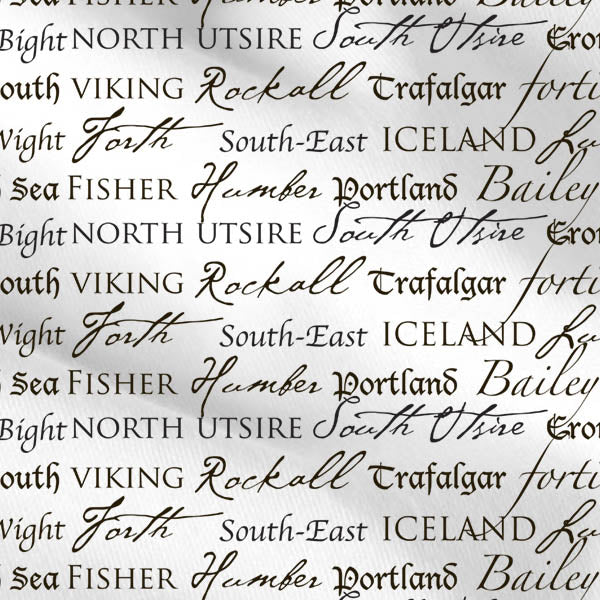 Sea FISHER Humber Portland Bailey
Bight NORTH UTSIRE South Utsire Cro
outh VIKING Rockall Trafalgar forti
Wight Forth South-East ICELAND Lu
Sea FISHER Humber Portland Bailey
Bight NORTH UTSIRE South Utsire Cro
outh VIKING Rockall Trafalgar forti
Wight Forth South-East ICELAND Lu
Sea FISHER Humber Portland Bailey
Bight NORTH UTSIRE South Utsire Cro
outh VIKING Rockall Trafalgar forti
Wight Forth South-East ICELAND Lu
Sea FISHER Humber Portland Bailey